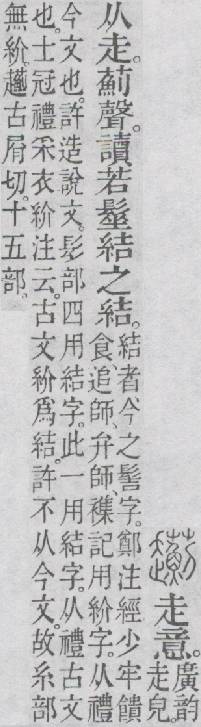 走意。
廣韵
走皃。
从走。薊聲。讀若髽結之結。
結者、今之髻字。鄭注經少牢饋
食、追師、弁師、襍記用紒字。从禮
今文也。許造說文。髟部四用結字。此一用結字。从禮古文
也。士冠禮采衣紒注云。古文紒爲結。許不从今文。故糸部
無紒。古屑切。十五部。